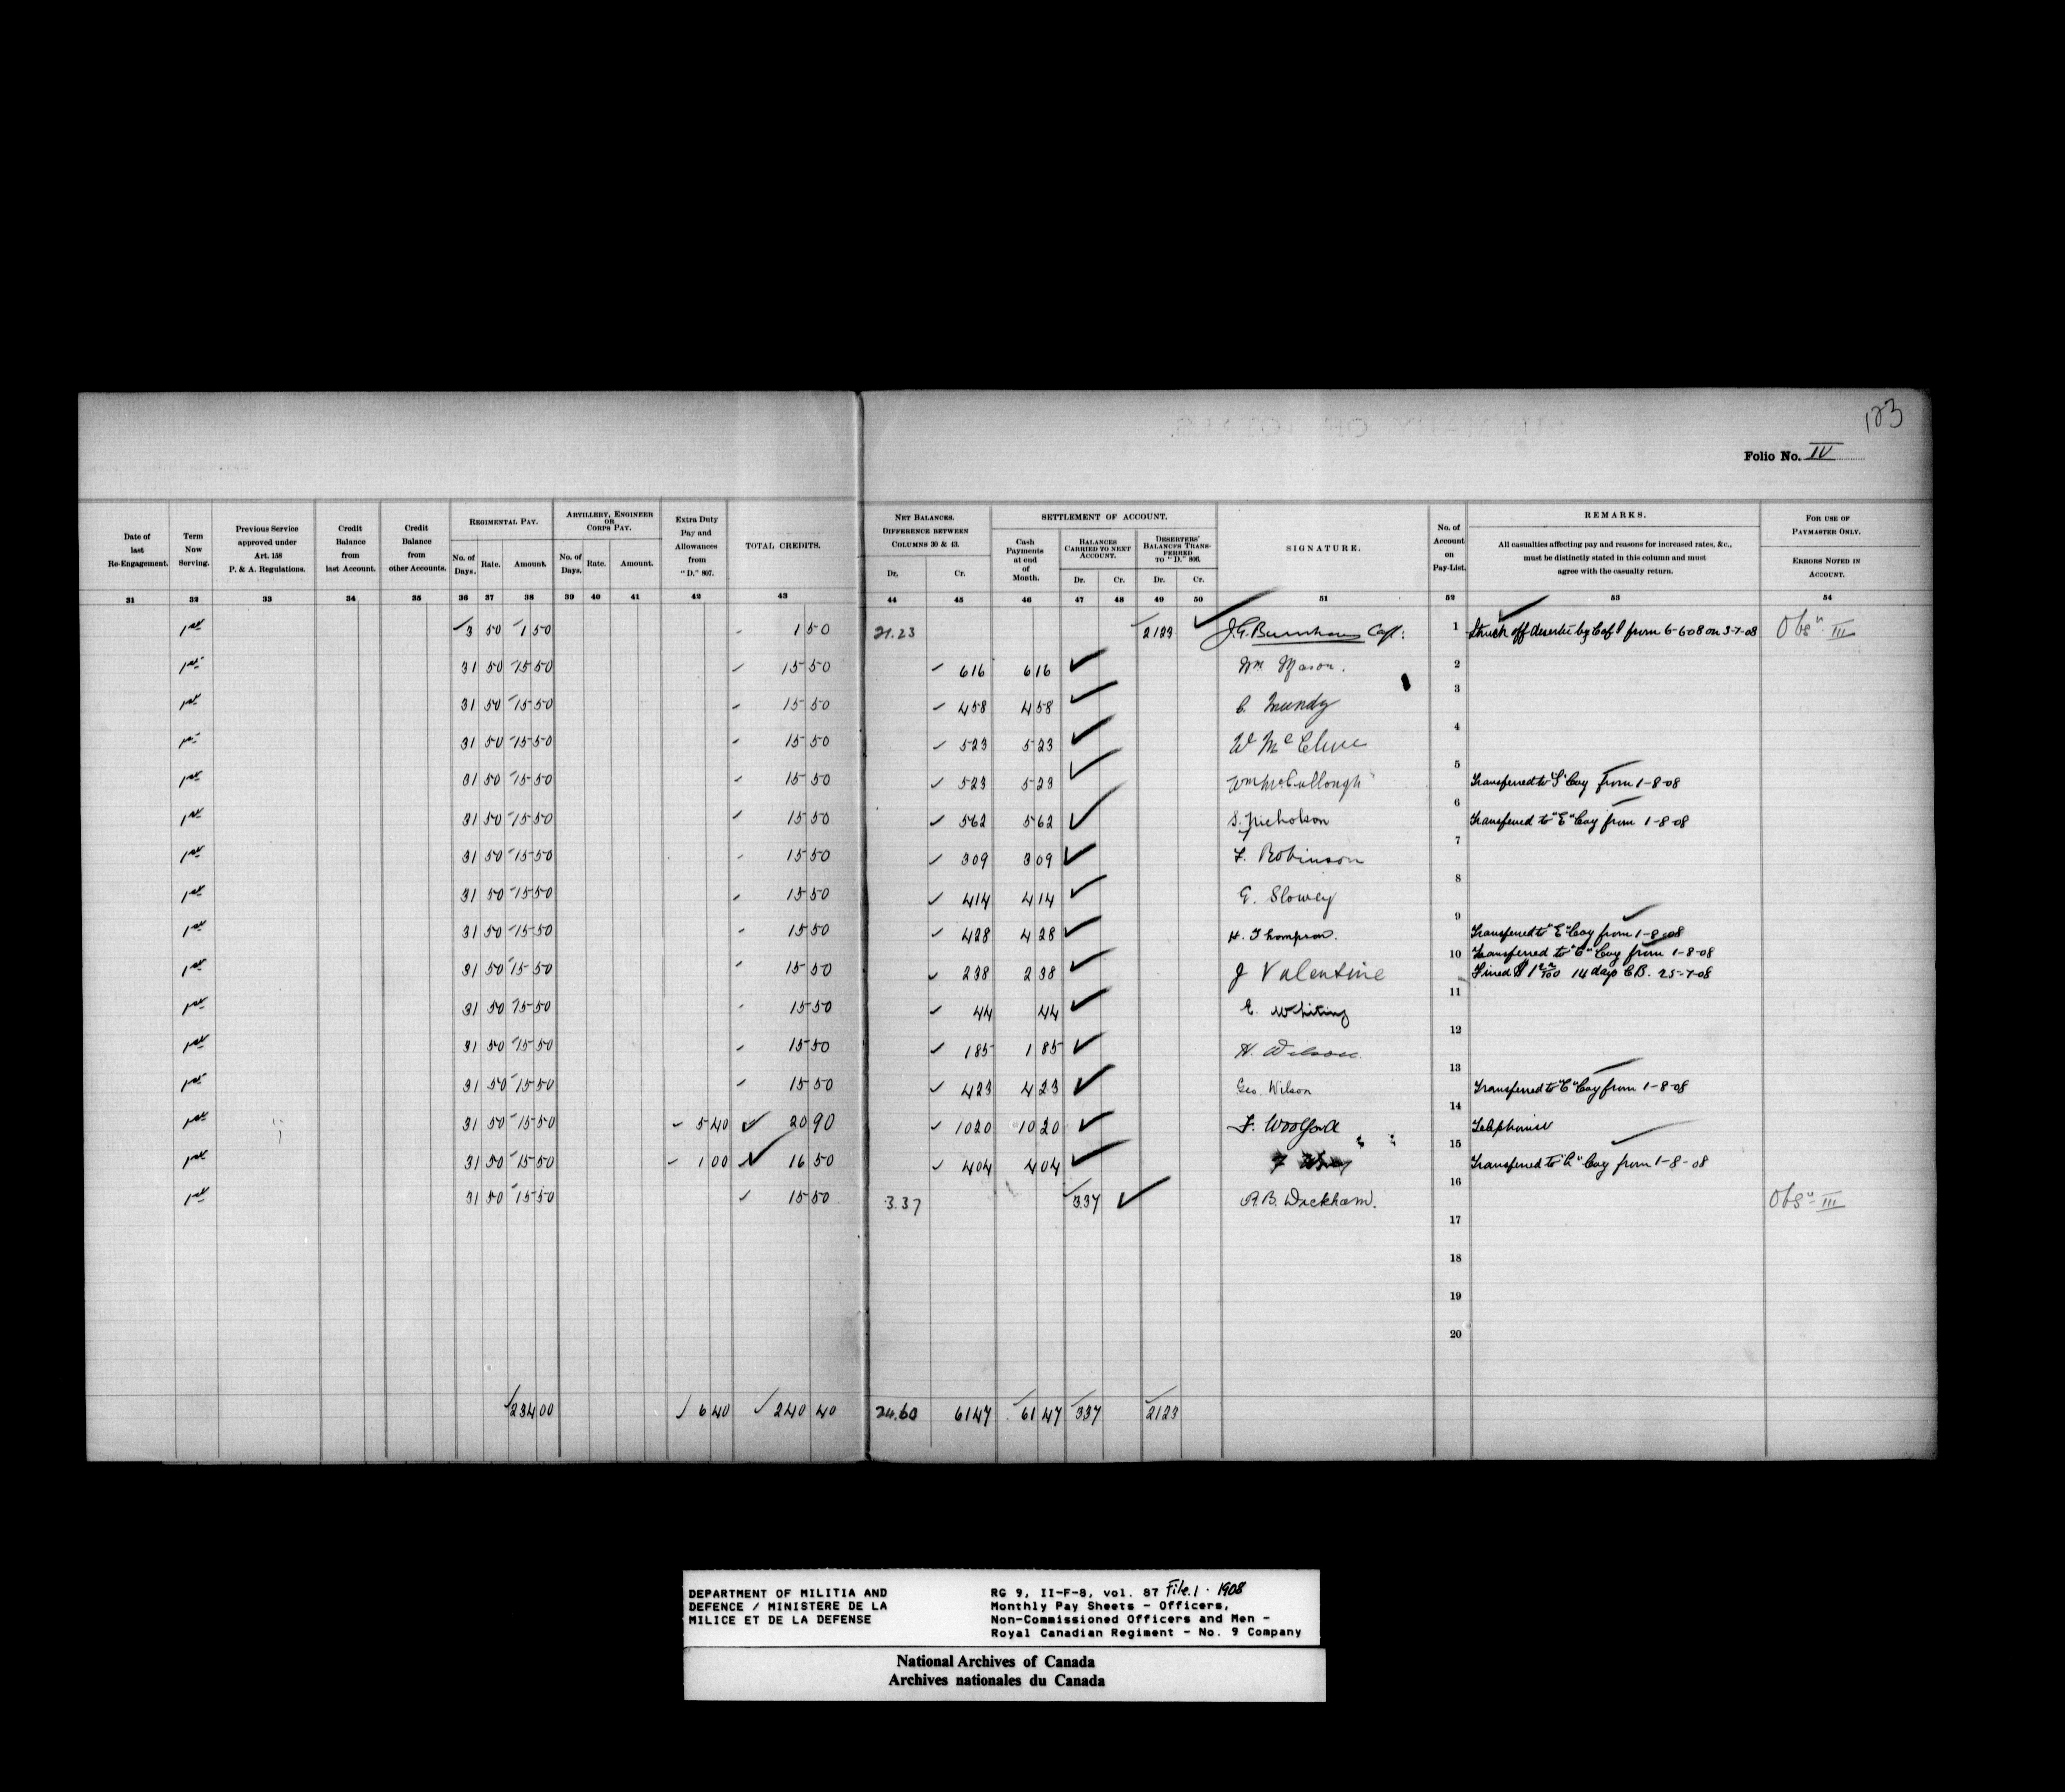 123
Folio No. IV
Date of last Re-Engagement.
Term Now Serving.
Previous Service approved under Art. 158 P. & A. Regulations.
Credit Balance from last Account.
Credit Balance from other Accounts.
REGIMENTAL PAY.
No. of Days. Rate. Amount.
ARTILLERY, ENGINEER OR CORPS PAY.
No. of Days. Rate. Amount.
Extra Duty Pay and Allowances from "D." 807.
TOTAL CREDITS.
NET BALANCES. DIFFERENCE BETWEEN COLUMNS 30 & 43.
Dr. Cr.
SETTLEMENT OF ACCOUNT.
Cash Payments at end of Month.
BALANCES CARRIED TO NEXT ACCOUNT.
Dr. Cr.
DESERTERS' BALANCES TRANSFERRED TO "D." 808.
Dr. Cr.
SIGNATURE.
No. of Account on Pay-List.
REMARKS.
All casualties affecting pay and reasons for increased rates, &c., must be distinctly stated in this column and must agree with the casualty return.
FOR USE OF PAYMASTER ONLY.
ERRORS NOTED IN ACCOUNT.
31 32 33 34 35 36 37 38 39 40 41 42 43 44 45 46 47 48 49 50 51 52 53 54
1st 3 50 1 50 1 50 21.23 21 23 J.G. Burnham Capt: 1 Struck off deserter by from 6-6-08 on 3-7-08 Obsn III
1st 31 50 15 50 15 50 6 16 6 16 Wm Mason. 2
1st 31 50 15 50 15 50 4 58 4 58 C. Mundy 3
1st 31 50 15 50 15 50 5 23 5 23 W McClure 4
1st 31 50 15 50 15 50 5 23 5 23 Wm McCullough 5 Transferred to Coy from 1-8-08
1st 31 50 15 50 15 50 5 62 5 62 S. Nicholson 6 Transferred to "E" Coy from 1-8-08
1st 31 50 15 50 15 50 3 09 3 09 F. Robinson 7
1st 31 50 15 50 15 50 4 14 4 14 E. Slowey 8
1st 31 50 15 50 15 50 4 28 4 28 H. Thompson. 9 Transferred to "E" Coy from 1-8-08
1st 31 50 15 50 15 50 2 38 2 38 J Valentine 10 Transferred to "C" Coy from 1-8-08
Fined 14 days CB. 25-7-08
1st 31 50 15 50 15 50 44 44 E. Whiting 11
1st 31 50 15 50 15 50 1 85 1 85 H. Wilson 12
1st 31 50 15 50 15 50 4 23 4 23 Geo. Wilson 13 Transferred to "C" Coy from 1-8-08
1st 31 50 15 50 5 40 20 90 10 20 10 20 F. Woolford 14 Telephonist
1st 31 50 15 50 1 00 16 50 4 04 4 04 15 Transferred to Coy from 1-8-08
1st 31 50 15 50 15 50 3.37 3 37 A.B. Wickham. 16 Obsn III
17
18
19
20
234 00 6 40 240 40 24.60 61 47 61 47 3 37 21 23
DEPARTMENT OF MILITIA AND
DEFENCE / MINISTERE DE LA
MILICE ET DE LA DEFENSE
RG 9, II-F-8, vol. 87 File.1. 1908
Monthly Pay Sheets - Officers,
Non-Commissioned Officers and Men -
Royal Canadian Regiment - No. 9 Company
National Archives of Canada
Archives nationales du Canada